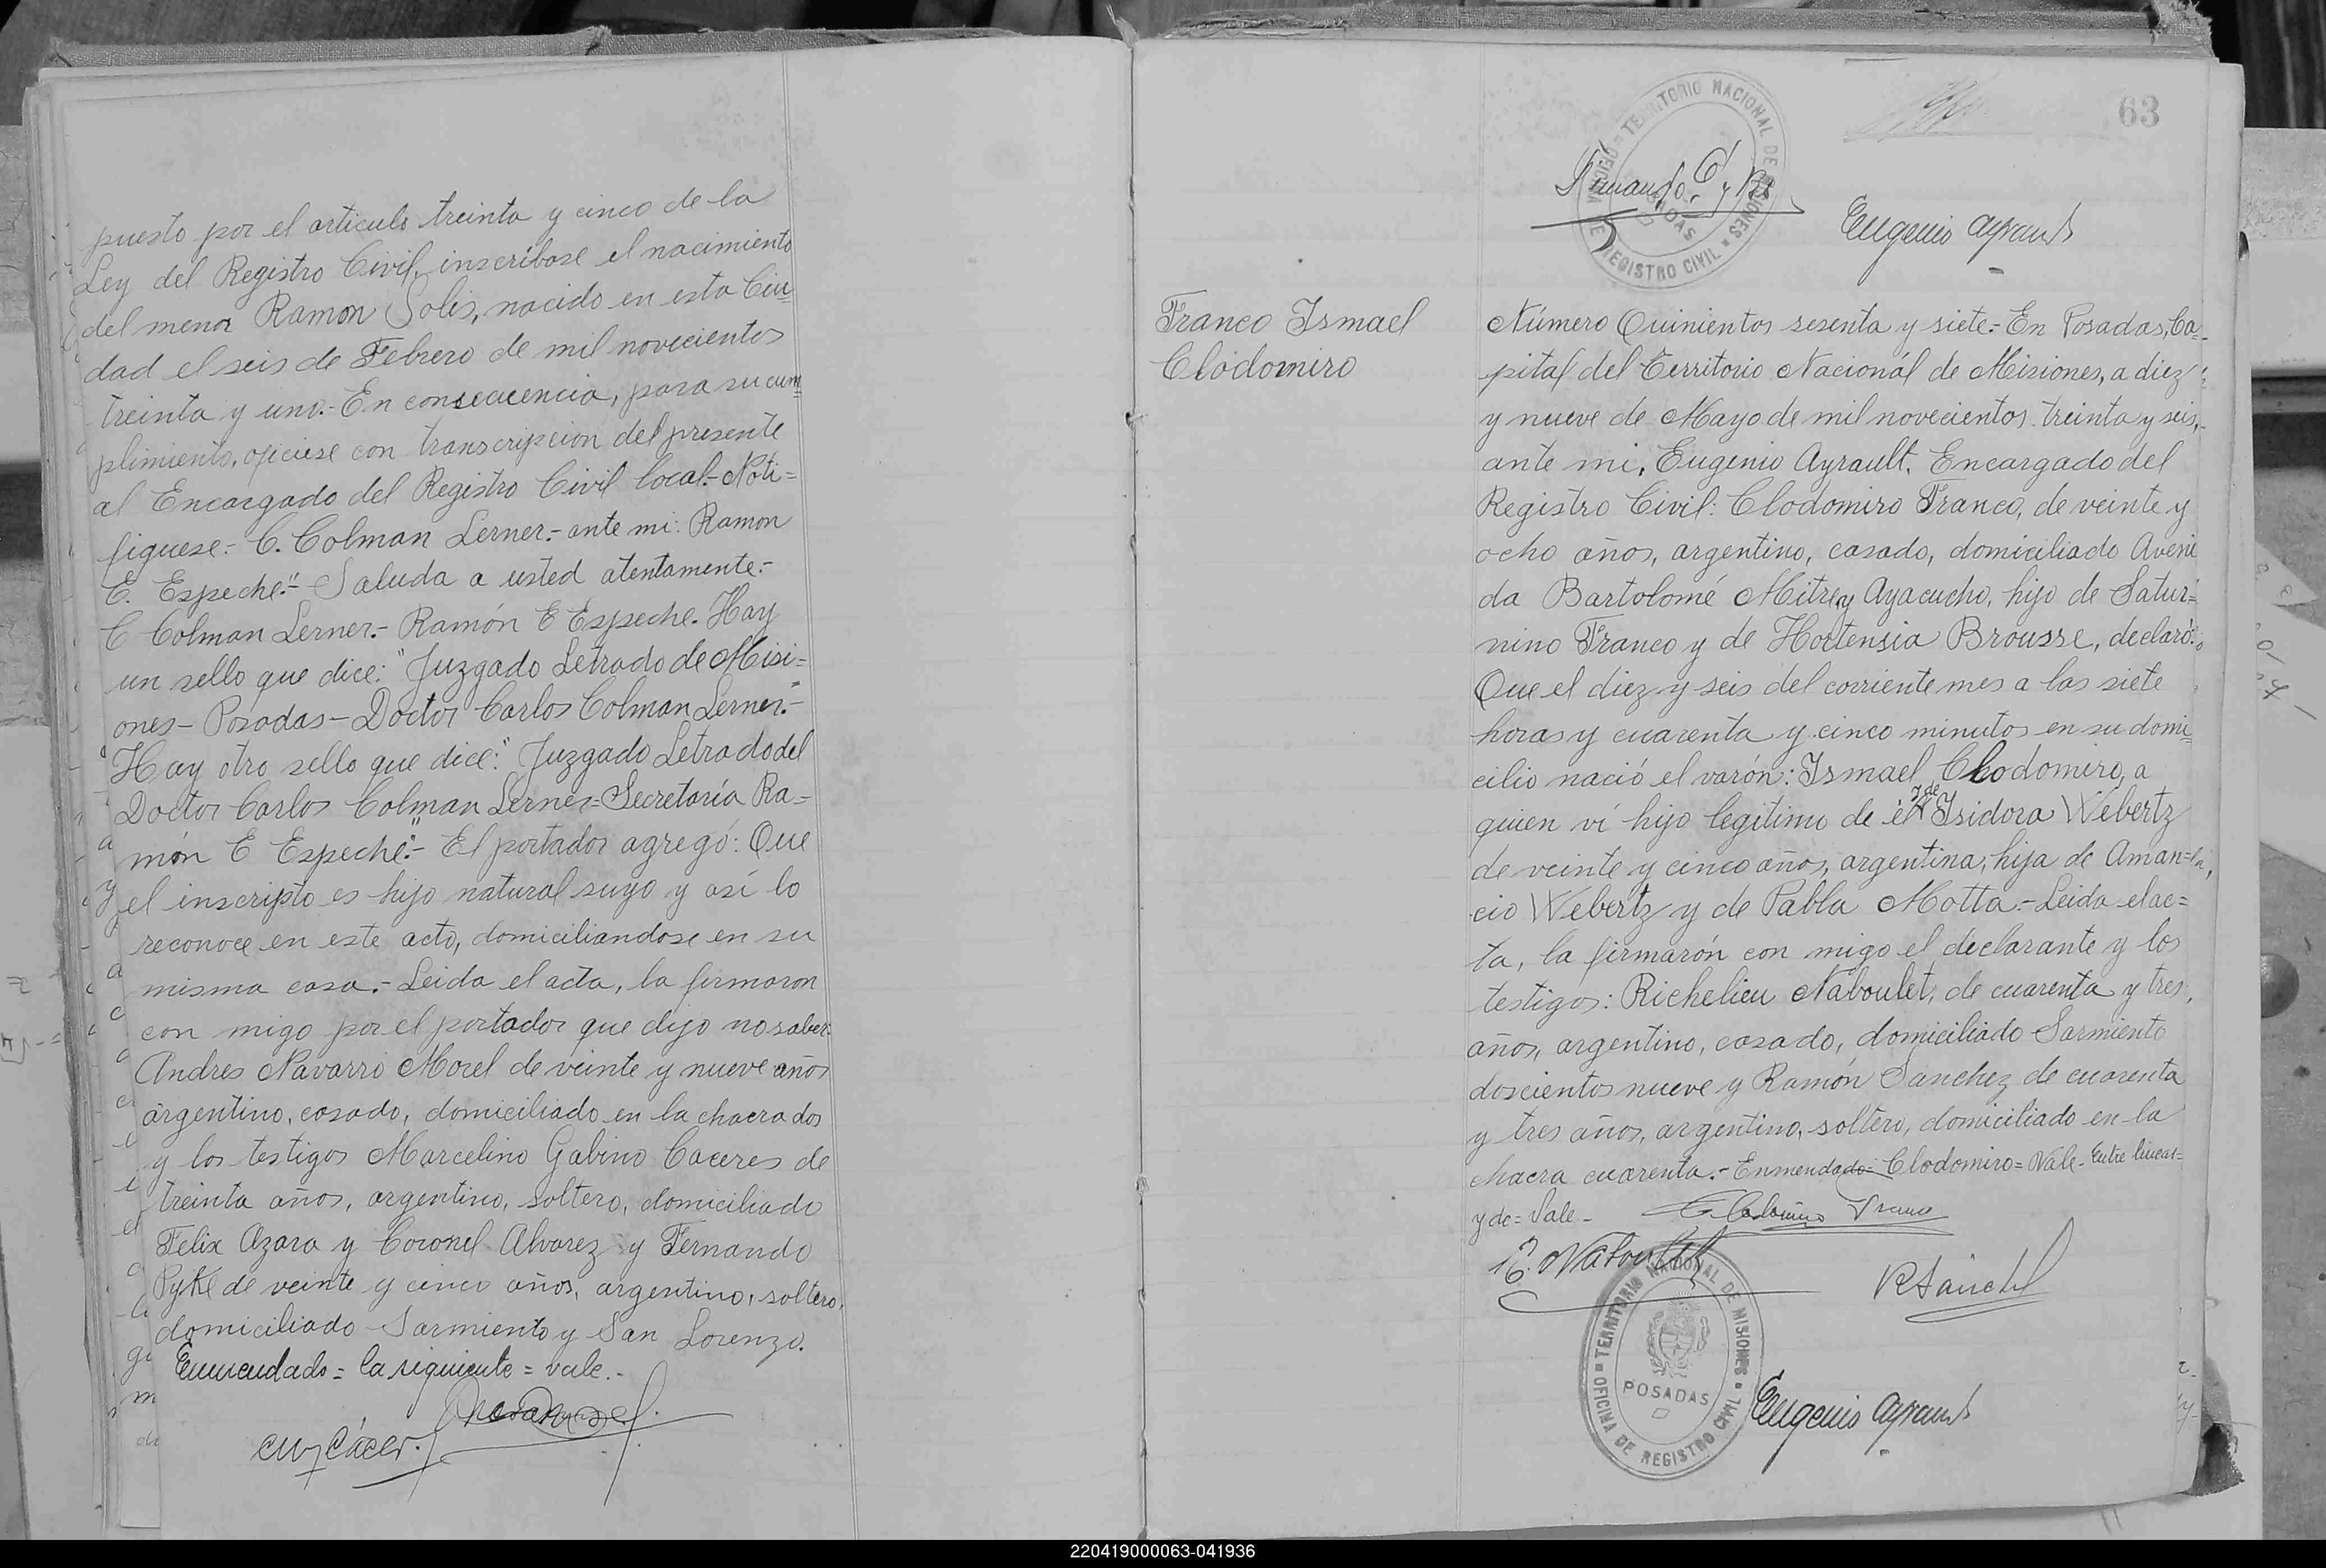 puesto por el articulo treinta y cinco de la
Ley del Registro Civil, inscríbase el nacimiento
del menor Ramon Solis, nacido en esta Ciu=
dad el seis de Febrero de mil novecientos
treinta y uno.- En consecuencia, para su cum=
plimiento, oficiese con transcripcion del presente
al Encargado del Registro Civil local.- Noti=
fiquese.- C. Colman Lerner.- ante mi: Ramon
E. Espeche."- Saluda a usted atentamente.-
C Colman Lerner.- Ramón E Espeche. Hay
un sello que dice: "Juzgado Letrado de Misi=
ones - Posadas - Doctor Carlos Colman Lerner."-
Hay otro sello que dice: "Juzgado Letrado del
Doctor Carlos Colman Lerner = Secretaría Ra=
món E Espeche".- El portador agregó: Que
el inscripto es hijo natural suyo y así lo
reconoce en este acto, domiciliandose en su
misma casa.- Leida el acta, la firmaron
con migo por el portador que dijo no saber
Andres Navarro Morel de veinte y nueve años
argentino, casado, domiciliado en la chacra dos
y los testigos Marcelino Gabino Caceres de
treinta años, argentino, soltero, domiciliado
Felix Azara y Coronel Alvarez y Fernando
Pyke de veinte y cinco años, argentino, soltero,
domiciliado Sarmiento y San Lorenzo.
Enmendado = la siguiente = vale.-
63
TERRITORIO NACIONAL DE MISIONES
OFICINA DE REGISTRO CIVIL
POSADAS
Eugenio Ayrault
Franco Ismael
Clodomiro
Número Quinientos sesenta y siete.- En Posadas, Ca=
pital del Territorio Nacionál de Misiones, a diez
y nueve de Mayo de mil novecientos treinta y seis,
ante mi, Eugenio Ayrault, Encargado del
Registro Civil: Clodomiro Franco, de veinte y
ocho años, argentino, casado, domiciliado Aveni
da Bartolomé Mitre y Ayacucho, hijo de Satur=
nino Franco y de Hortensia Brousse, declaró:
Que el diez y seis del corriente mes a las siete
horas y cuarenta y cinco minutos en su domi=
cilio nació el varón: Ismael Clodomiro, a
quien ví hijo legitimo de él y de Isidora Webertz
de veinte y cinco años, argentina, hija de Aman=
cio Webertz y de Pabla Motta.- Leida el ac=
ta, la firmarón con migo el declarante y los
testigos: Richelieu Naboulet, de cuarenta y tres
años, argentino, casado, domiciliado Sarmiento
doscientos nueve y Ramón Sanchez de cuarenta
y tres años, argentino, soltero, domiciliado en la
chacra cuarenta.- Enmendado= Clodomiro= Vale- Entre lineas=
y de= Vale.- Clodomiro Franco
R. Naboulet
R Sánchez
TERRITORIO NACIONAL DE MISIONES
POSADAS
OFICINA DE REGISTRO CIVIL
Eugenio Ayrault
220419000063-041936